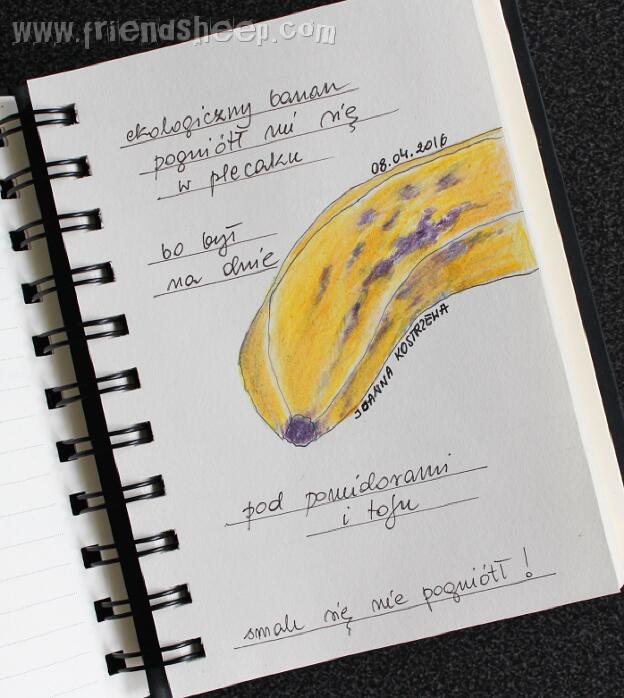 www.friendsheep.com
ekologiczny banan
pogniótł mi się
w plecaku
08.04.2016
bo był
na dnie
JOANNA KOSTRZEWA
pod pomidorami
i tofu
smak się nie pogniótł!